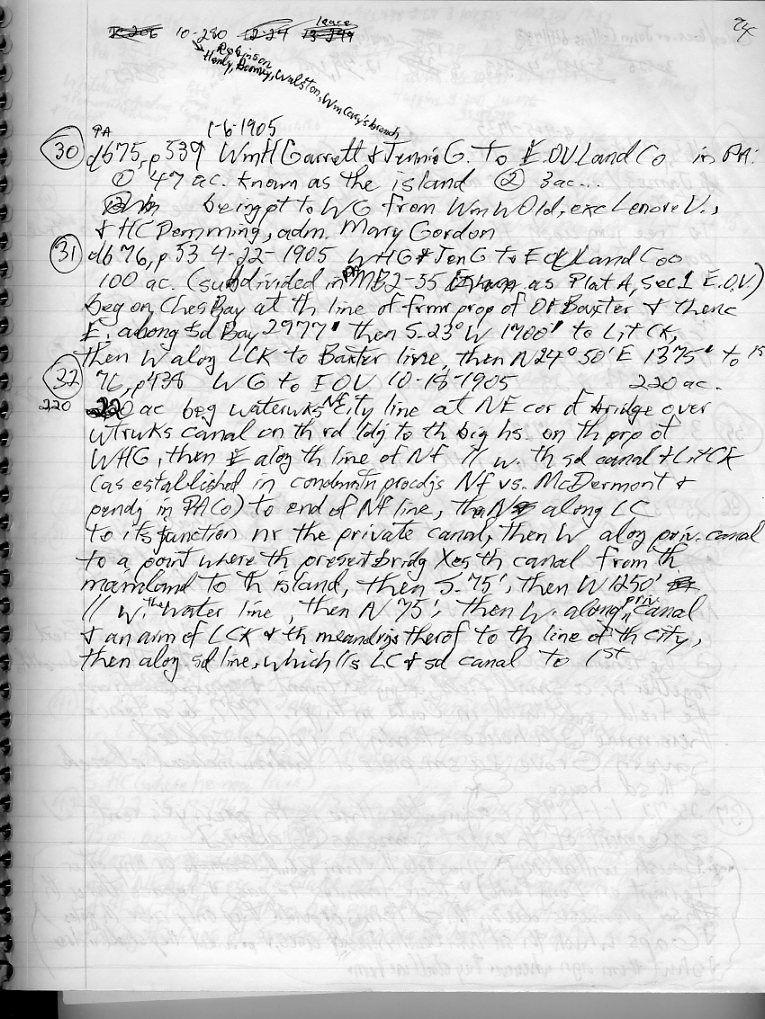 24
lease
10-280 12-24
Robinson
Henly, Bonney, Walston, Wm Cary's branch
PA 1-6-1905
30 db75, p539 Wm H Garrett & Jennie G. to E.OV Land Co in PA:
① 47 ac. known as the island ② 3 ac...
being pt to WG from Wm W Old, exc Lenore V.,
& HC Demming, adm. Mary Gordon
31 db 76, p 53 4-22-1905 WHG & Jen G to E OV Land Coo
100 ac. (subdivided in MB2-55 as Plat A, Sec 1 E.OV)
beg on Ches Bay at th line of frmr prop of OF Baxter & thenc
E, along sd Bay 2977' then S-23°W 1700' to Lit Ck,
then W along LCK to Baxter line, then N24° 50' E 1375' to 1st
32 76, p438 WG to EOV 10-18-1905 220 ac.
220 220 ac beg waterwks Nf City line at NE cor of bridge over
wtrwks canal on th rd ldg to th big hs. on th prp of
WHG, then E along th line of Nf // w. th sd canal & Lit CK
(as established in Nf vs. McDermont &
pendg in PA Co) to end of Nf line, th N along LC
to its junction nr the private canal, then W alog priv. canal
to a point where th present bridg Xes th canal from th
mainland to th island, then S-75', then W 1250'
// w. the water line, then N 75', then W. along priv. Canal
& an arm of LCK & th meandrigs therof to th line of th city,
then alog sd line, which //s LC & sd canal to 1st